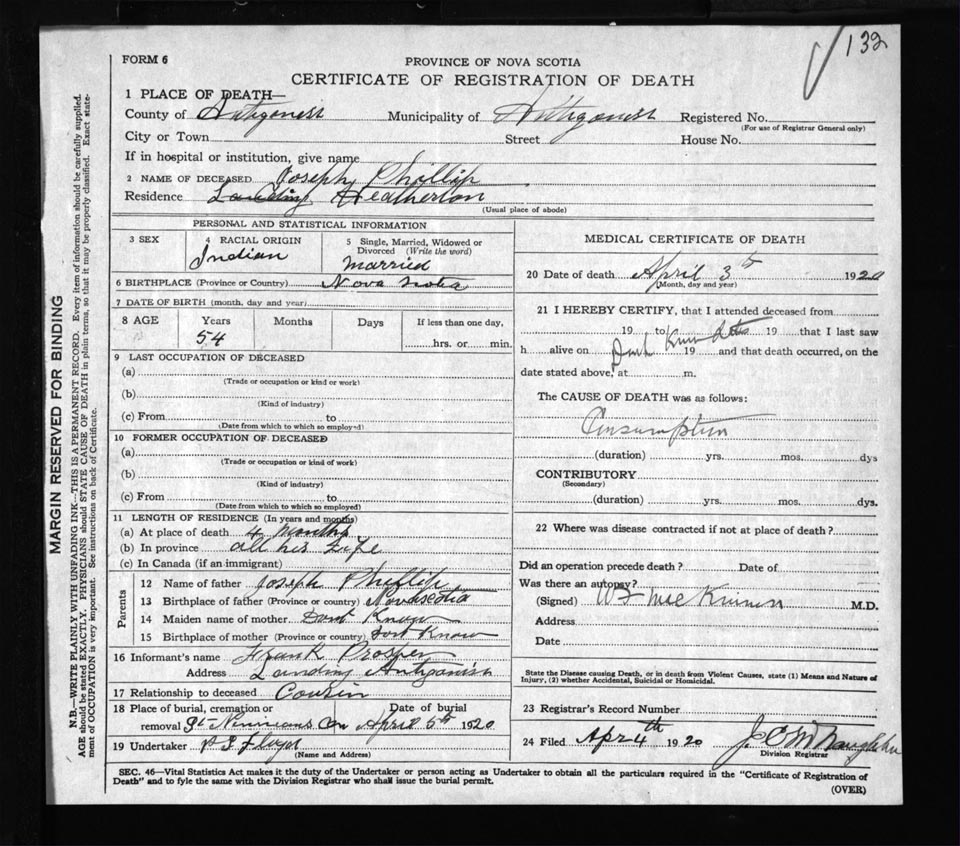 132
FORM 6
PROVINCE OF NOVA SCOTIA
CERTIFICATE OF REGISTRATION OF DEATH
1 PLACE OF DEATH—
County of Antigonish Municipality of Antigonish Registered No.
(For use of Registrar General only)
City or Town Street House No.
If in hospital or institution, give name
2 NAME OF DECEASED Joseph Phillip
Residence Landing Heatherton
(Usual place of abode)
PERSONAL AND STATISTICAL INFORMATION
3 SEX
4 RACIAL ORIGIN Indian
5 Single, Married, Widowed or Divorced (Write the word) Married
6 BIRTHPLACE (Province or Country) Nova Scotia
7 DATE OF BIRTH (month, day and year)
8 AGE Years Months Days If less than one day,
54 hrs. or min.
9 LAST OCCUPATION OF DECEASED
(a)
(Trade or occupation or kind or work)
(b)
(Kind of industry)
(c) From to
(Date from which to which so employed)
10 FORMER OCCUPATION OF DECEASED
(a)
(Trade or occupation or kind of work)
(b)
(Kind of industry)
(c) From to
(Date from which to which so employed)
11 LENGTH OF RESIDENCE (In years and months)
(a) At place of death 4 months
(b) In province all his Life
(c) In Canada (if an immigrant)
Parents
12 Name of father Joseph Phillip
13 Birthplace of father (Province or country) Novascotia
14 Maiden name of mother Dont Know
15 Birthplace of mother (Province or country) Dont Know
16 Informant's name Frank Prosper
Address Landing Antigonish
17 Relationship to deceased Cousin
18 Place of burial, cremation or Date of burial
removal St Ninnians Cem April 5th 1920
19 Undertaker Floyd
(Name and Address)
MEDICAL CERTIFICATE OF DEATH
20 Date of death April 3rd 1920
(Month, day and year)
21 I HEREBY CERTIFY, that I attended deceased from
19 to 19 that I last saw
h alive on 19 and that death occurred, on the
date stated above, at m.
The CAUSE OF DEATH was as follows:
Consumption
(duration) yrs. mos. dys
CONTRIBUTORY
(Secondary)
(duration) yrs. mos. dys.
22 Where was disease contracted if not at place of death?
Did an operation precede death? Date of
Was there an autopsy?
(Signed) W F McKinnon M.D.
Address
Date
State the Disease causing Death, or in death from Violent Causes, state (1) Means and Nature of
Injury, (2) whether Accidental, Suicidal or Homicidal.
23 Registrar's Record Number
24 Filed Apr 4th 1920
Division Registrar
SEC. 46—Vital Statistics Act makes it the duty of the Undertaker or person acting as Undertaker to obtain all the particulars required in the "Certificate of Registration of
Death" and to fyle the same with the Division Registrar who shall issue the burial permit.
(OVER)
MARGIN RESERVED FOR BINDING
N.B.—WRITE PLAINLY WITH UNFADING INK—THIS IS A PERMANENT RECORD. Every item of information should be carefully supplied.
AGE should be stated EXACTLY. PHYSICIANS should STATE CAUSE OF DEATH in plain terms, so that it may be properly classified. Exact state-
ment of OCCUPATION is very important. See instructions on back of Certificate.